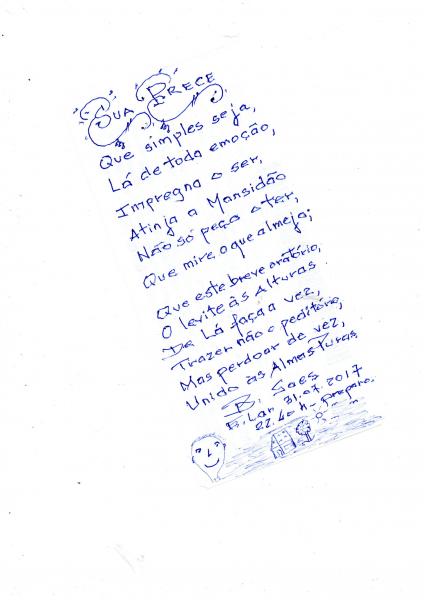 SUA PRECE
Que simples seja,
Lá de toda emoção,
Impregna o ser,
Atinja a Mansidão
Não só peço o ter,
Que mire o que almeja;
Que este breve oratório,
O levite às Alturas.
De Lá faça a vez,
Trazer não o peditório,
Mas perdoar de vez,
Unido às Almas Puras,
B. Saes
Lar, 31.07.2017
22.40h - preparo.